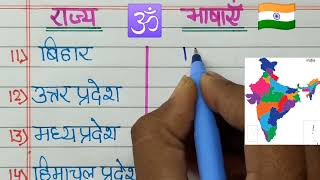 राज्य ॐ भाषाएँ
11) बिहार
12) उत्तर प्रदेश
13) मध्यप्रदेश
14) हिमाचल प्रदेश